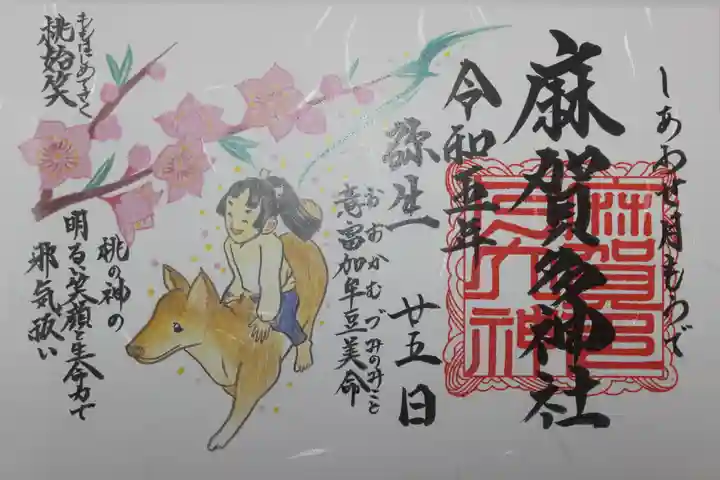 しあわせ月もうで
麻賀多神社
令和五年
弥生 廿五日
おおかむづみのみこと
意富加牟豆美命
ももはじめてさく
桃始笑
桃の神の
明るい笑顔と生命力で
邪気祓い